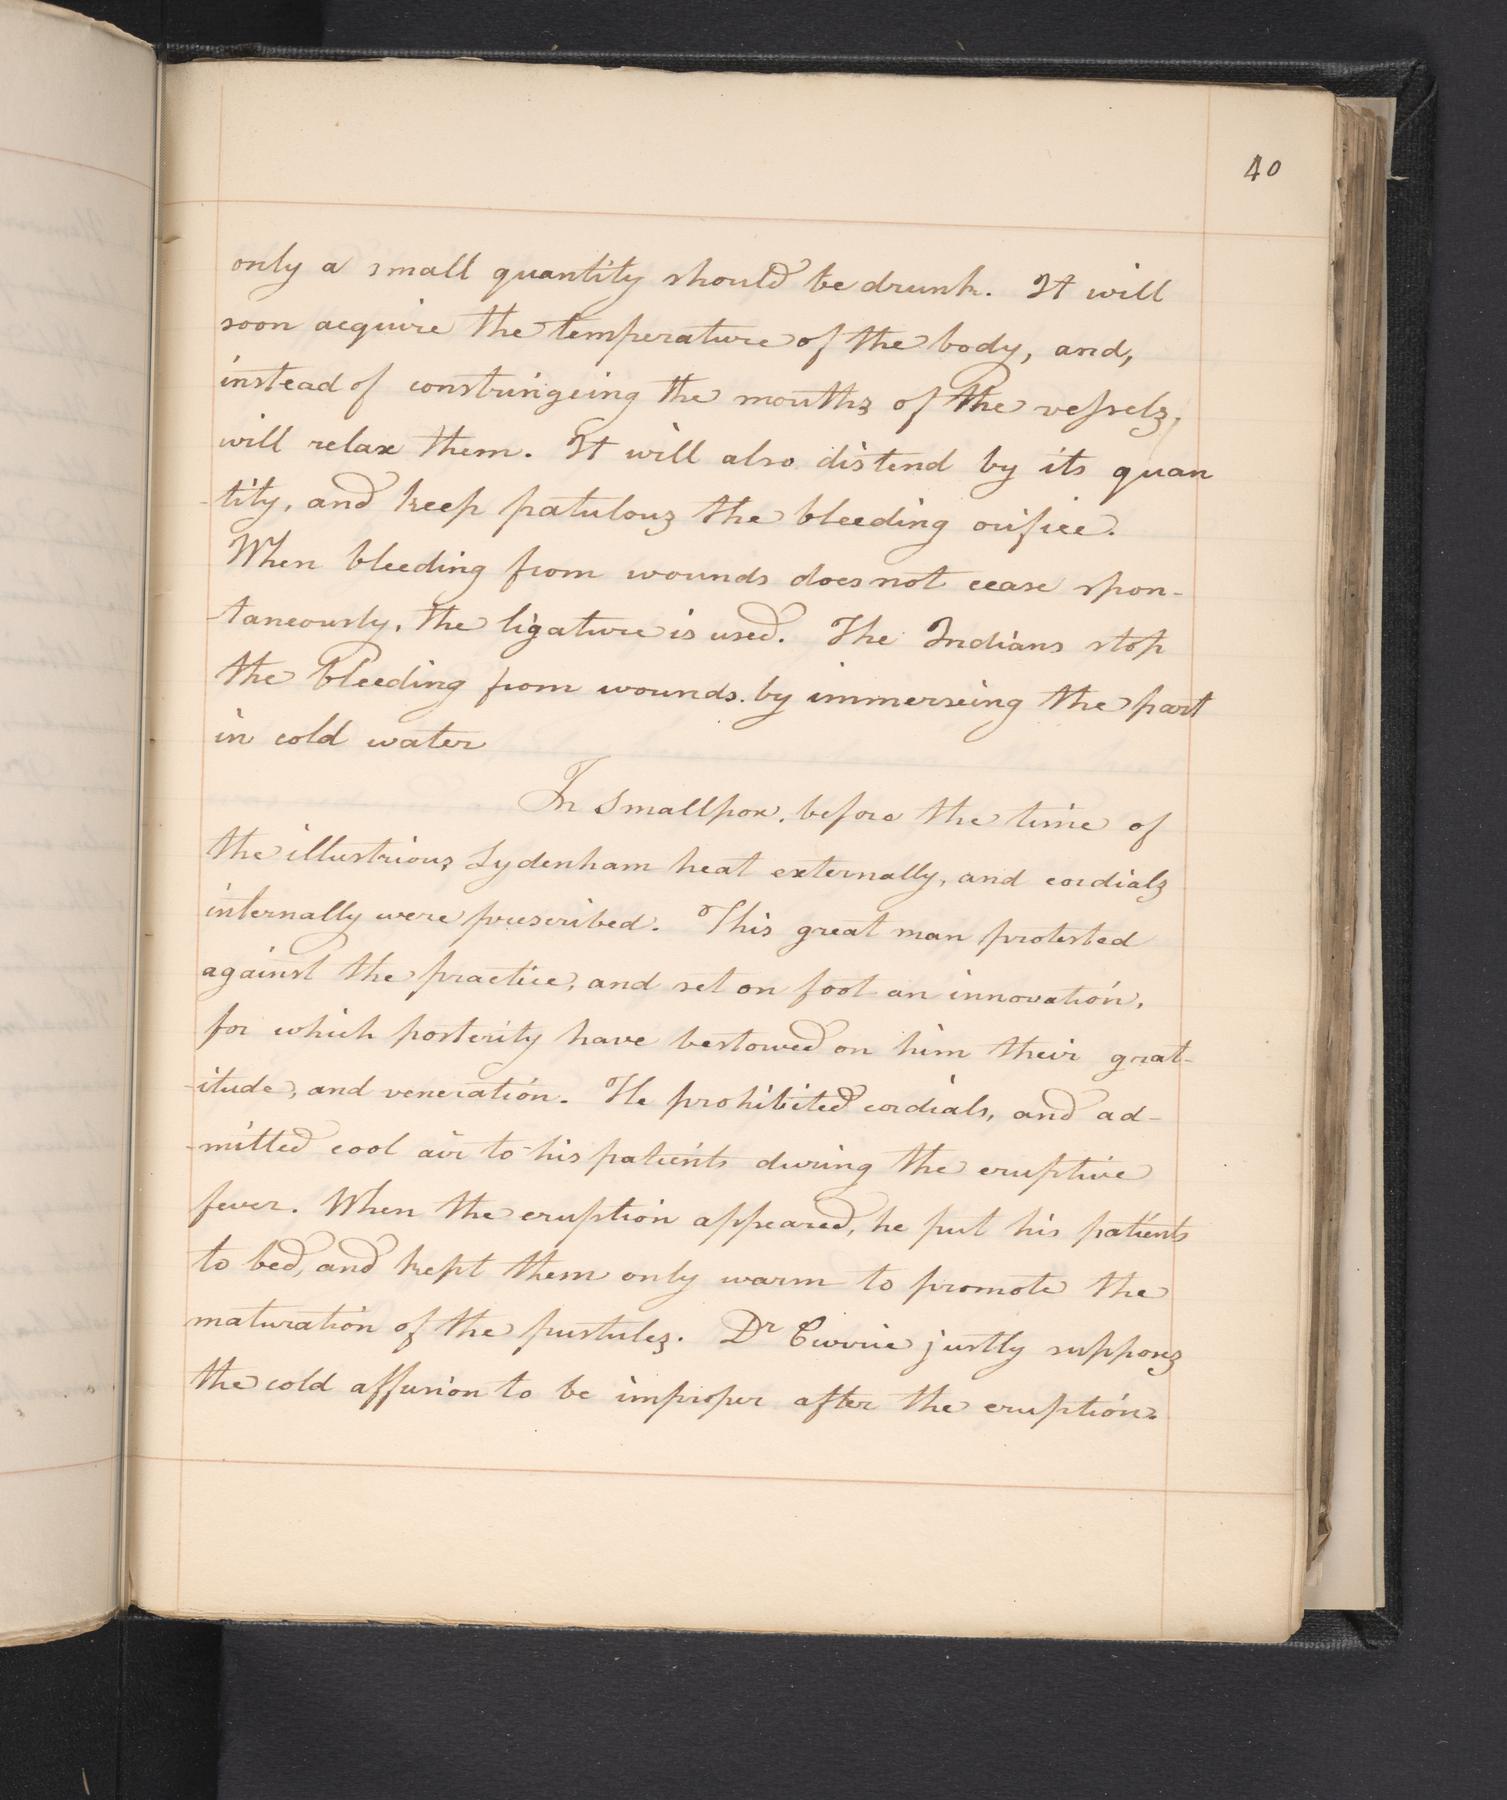 40
only a small quantity should be drunk. It will
soon acquire the temperature of the body, and,
instead of constringeing the mouths of the vessels,
will relax them. It will also distend by its quan
-tity, and keep patulous the bleeding orifice.
When bleeding from wounds does not cease spon-
-taneously, the ligature is used. The Indians stop
the bleeding from wounds by immerseing the part
in cold water
In Smallpox, before the time of
the illustrious Sydenham heat externally, and cordials
internally were prescribed. This great man protested
against the practice, and set on foot an innovation,
for which posterity have bestowed on him their grat-
-itude, and veneration. He prohibited cordials, and ad-
-mitted cool air to his patients during the eruptive
fever. When the eruption appeared, he put his patients
to bed, and kept them only warm to promote the
maturation of the pustules. Dr Currie justly supposes
the cold affusion to be improper after the eruption.